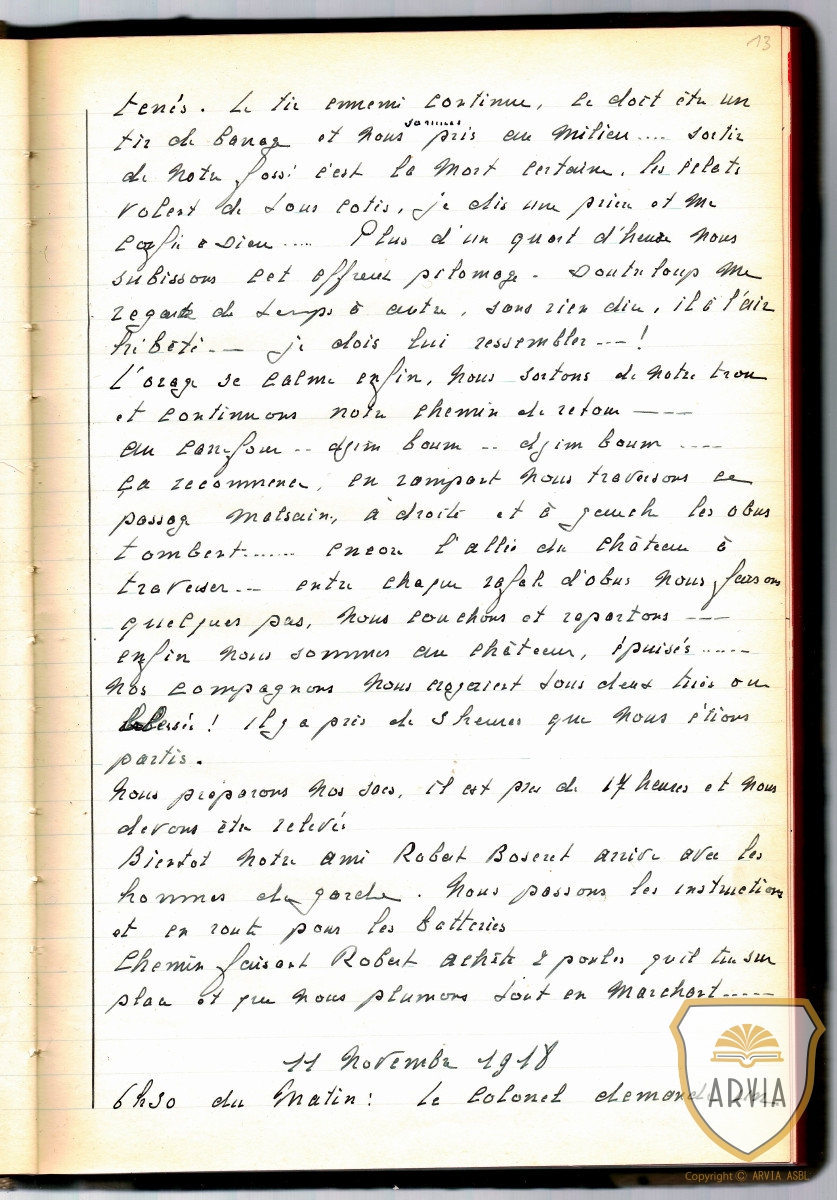 13
tenés. Le tir ennemi continue, ce doit être un
tir de barrage et nous sommes pris au milieu .... sortir
de notre fossé c'est la mort certaine, les éclats
volent de tous cotés, je dis une prière et me
confie à Dieu .... Plus d'un quart d'heure nous
subissons cet affreux pilonnage - me
regarde de temps à autre, sans rien dire, il à l'air
hébété -- je dois lui ressembler --- !
L'orage se calme enfin, nous sortons de notre trou
et continuons notre chemin de retour ----
au carrefour .. dzim boum .. dzim boum ----
ça recommence, en rampant nous traversons ce
passage malsain, à droite et à gauche les obus
tombent...... encore l'allée du château à
traverser... entre chaque rafale d'obus nous faisons
quelques pas, nous couchons et repartons ---
enfin nous sommes au château, épuisés .....
Nos compagnons nous croyaient tous deux tués ou
blessés ! il y a près de 3 heures que nous étions
partis.
Nous préparons nos sacs, il est près de 17 heures et nous
devons être relevés
Bientot notre ami Robert Boseret arrive avec les
hommes de garde. Nous passons les instructions
et en route pour les batteries
Chemin faisant Robert achète 2 poules qu'il tue sur
place et que nous plumons tout en marchant .....
11 Novembre 1918
6h30 du Matin : Le Colonel demande
ARVIA
Copyright © ARVIA ASBL